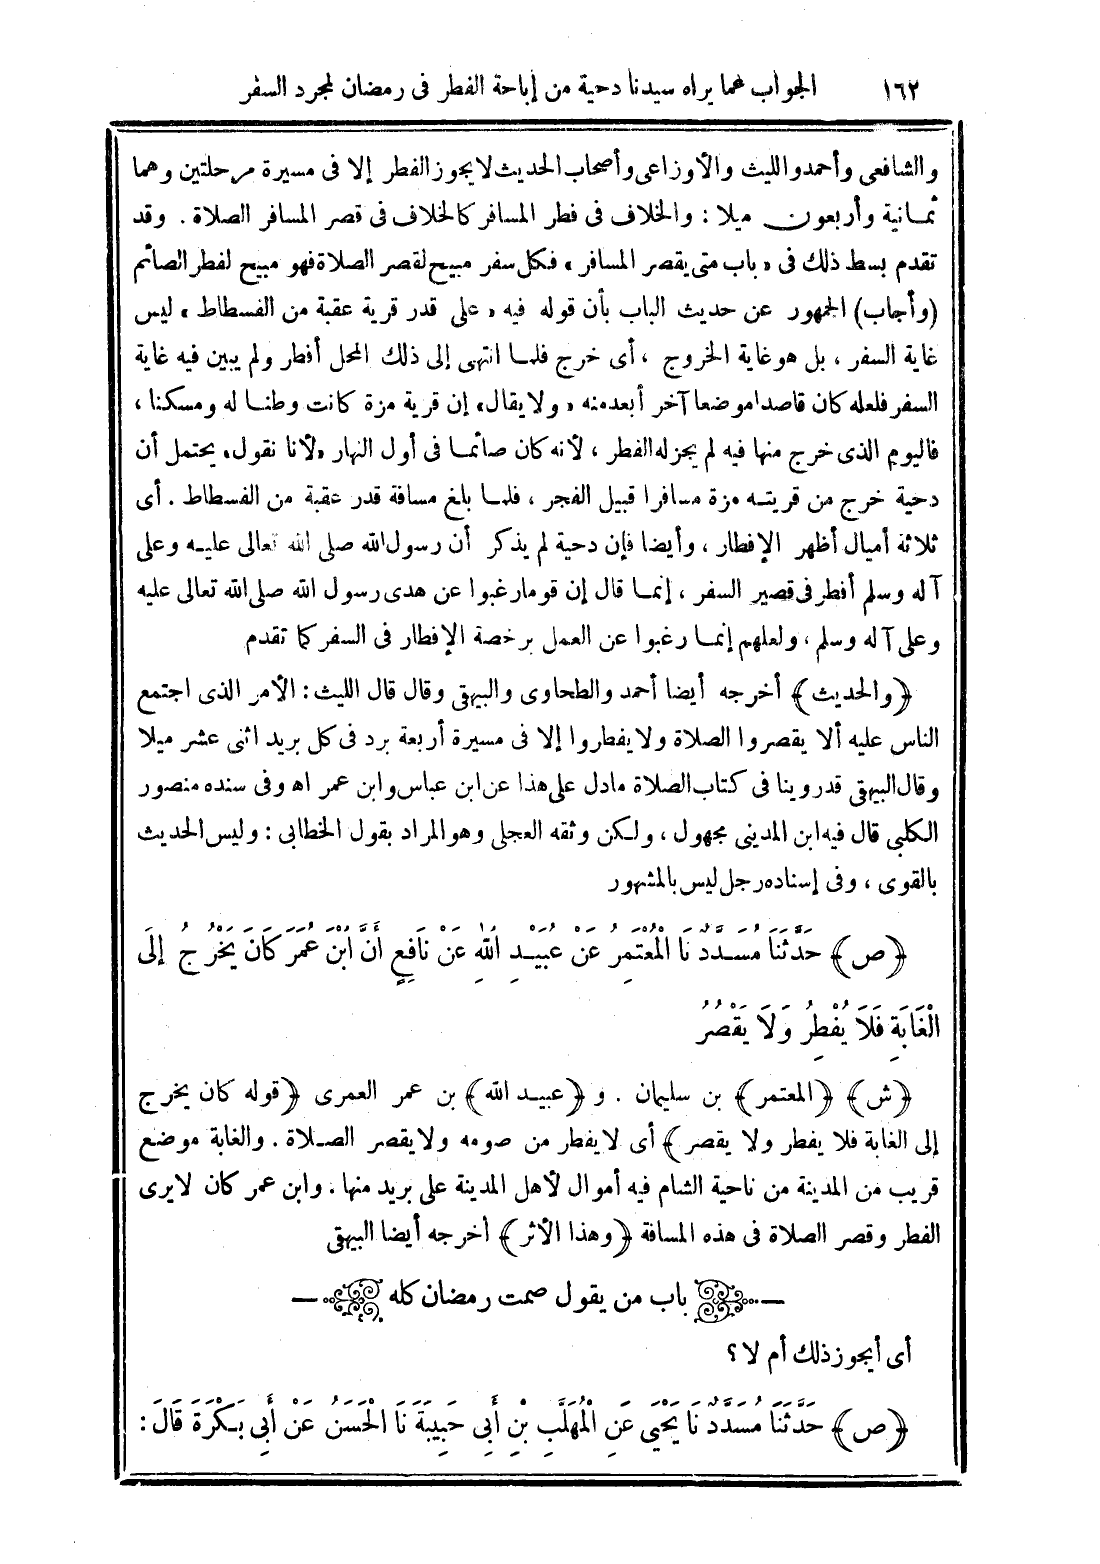 ١٦٢ الجواب عما يراه سيدنا دحية من إباحة الفطر فى رمضان لمجرد السفر
والشافعى وأحمد والليث والأوزاعى وأصحاب الحديث لا يجوز الفطر إلا فى مسيرة مرحلتين وهما
ثمـانية وأربعون ميلا : والخلاف فى فطر المسافر كالخلاف فى قصر المسافر الصلاة . وقد
تقدم بسط ذلك فى « باب متى يقصر المسافر » فكل سفر مبيح لقصر الصلاة فهو مبيح لفطر الصائم
(وأجاب) الجمهور عن حديث الباب بأن قوله فيه « على قدر قرية عقبة من الفسطاط » ليس
غاية السفر ، بل هو غاية الخروج ، أى خرج فلمـا انتهى إلى ذلك المحل أفطر ولم يبين فيه غاية
السفر فلعله كان قاصدا موضعا آخر أبعد منه « ولا يقال » إن قرية مزة كانت وطنـا له ومسكنا ،
فاليوم الذى خرج منها فيه لم يجز له الفطر ، لأنه كان صائمـا فى أول النهار « لأنا نقول » يحتمل أن
دحية خرج من قريتـه مزة مسافرا قبيل الفجر ، فلمـا بلغ مسافة قدر عقبة من الفسطاط . أى
ثلاثة أميال أظهر الإفطار ، وأيضا فإن دحية لم يذكر أن رسول الله صلى الله تعالى عليـه وعلى
آله وسلم أفطر فى قصير السفر ، إنمـا قال إن قوما رغبوا عن هدى رسول الله صلى الله تعالى عليه
وعلى آله وسلم ، ولعلهم إنمـا رغبوا عن العمل برخصة الإفطار فى السفر كما تقدم
﴿والحديث﴾ أخرجه أيضا أحمد والطحاوى والبيهقى وقال قال الليث : الأمر الذى اجتمع
الناس عليه ألا يقصروا الصلاة ولا يفطروا إلا فى مسيرة أربعة برد فى كل بريد اثنى عشر ميلا
وقال البيهقى قد روينا فى كتاب الصلاة ما دل على هذا عن ابن عباس وابن عمر اه وفى سنده منصور
الكلبى قال فيه ابن المدينى مجهول ، ولـكن وثقه العجلى وهو المراد بقول الخطابى : وليس الحديث
بالقوى ، وفى إسناده رجل ليس بالمشهور
﴿ص﴾ حَدَّثَنَا مُسَدَّدٌ نَا الْمُعْتَمِرُ عَنْ عُبَيْدِ اللهِ عَنْ نَافِعٍ أَنَّ ابْنَ عُمَرَ كَانَ يَخْرُجُ إِلَى
الْغَابَةِ فَلَا يُفْطِرُ وَلَا يَقْصُرُ
﴿ش﴾ ﴿المعتمر﴾ بن سليمان . و ﴿عبيد الله﴾ بن عمر العمرى ﴿قوله كان يخرج
إلى الغابة فلا يفطر ولا يقصر﴾ أى لا يفطر من صومه ولا يقصر الصلاة . والغابة موضع
قريب من المدينة من ناحية الشام فيه أموال لأهل المدينة على بريد منها . وابن عمر كان لا يرى
الفطر وقصر الصلاة فى هذه المسافة ﴿وهذا الأثر﴾ أخرجه أيضا البيهقى
باب من يقول صمت رمضان كله
أى أيجوز ذلك أم لا ؟
﴿ص﴾ حَدَّثَنَا مُسَدَّدٌ نَا يَحْيَى عَنِ الْمُهَلَّبِ بْنِ أَبِي حَبِيبَةَ نَا الْحَسَنُ عَنْ أَبِي بَـكْرَةَ قَالَ :